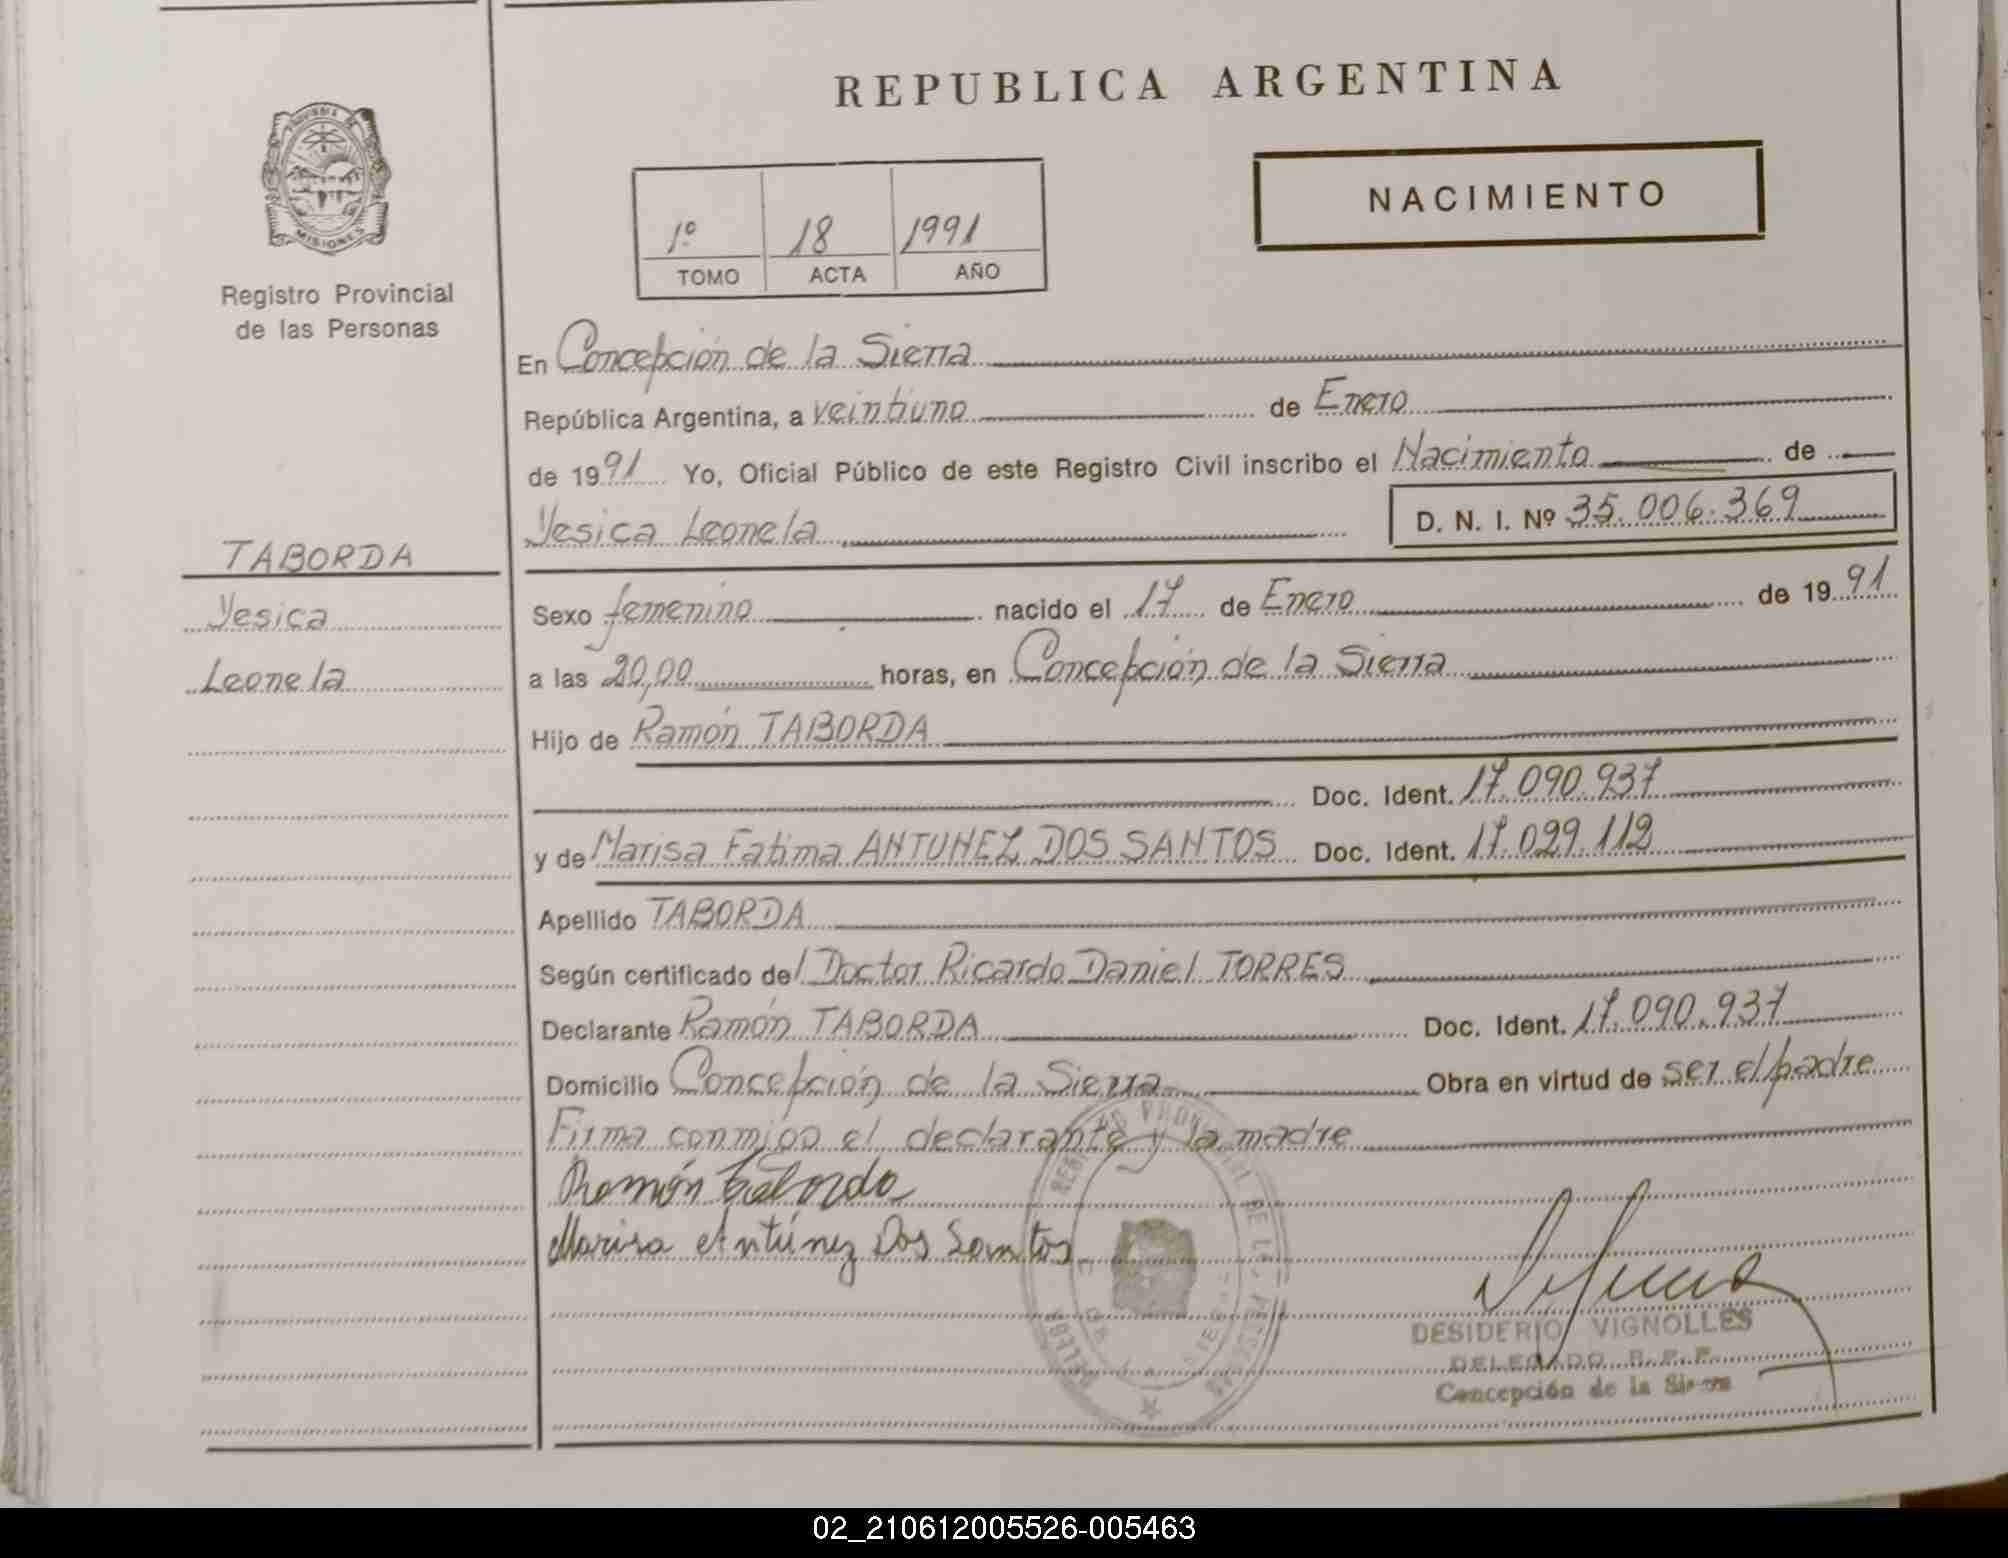 REPUBLICA ARGENTINA
PROVINCIA DE
MISIONES
Registro Provincial
de las Personas
NACIMIENTO
1º 18 1991
TOMO ACTA AÑO
TABORDA
Yesica
Leonela
En Concepción de la Sierra
República Argentina, a veintiuno de Enero
de 1991 Yo, Oficial Público de este Registro Civil inscribo el Nacimiento de
Yesica Leonela D. N. I. Nº 35.006.369
Sexo femenino nacido el 17 de Enero de 1991
a las 20,00 horas, en Concepción de la Sierra
Hijo de Ramón TABORDA
Doc. Ident. 17.090.937
y de Marisa Fatima ANTUNEZ DOS SANTOS Doc. Ident. 17.029.112
Apellido TABORDA
Según certificado del Doctor Ricardo Daniel TORRES
Declarante Ramón TABORDA Doc. Ident. 17.090.937
Domicilio Concepción de la Sierra Obra en virtud de ser el padre
Firma conmigo el declarante y la madre
Ramón Taborda
Marisa Antúnez Dos Santos
DESIDERIO VIGNOLLES
DELEGADO R.P.P.
Concepción de la Sierra
02_210612005526-005463